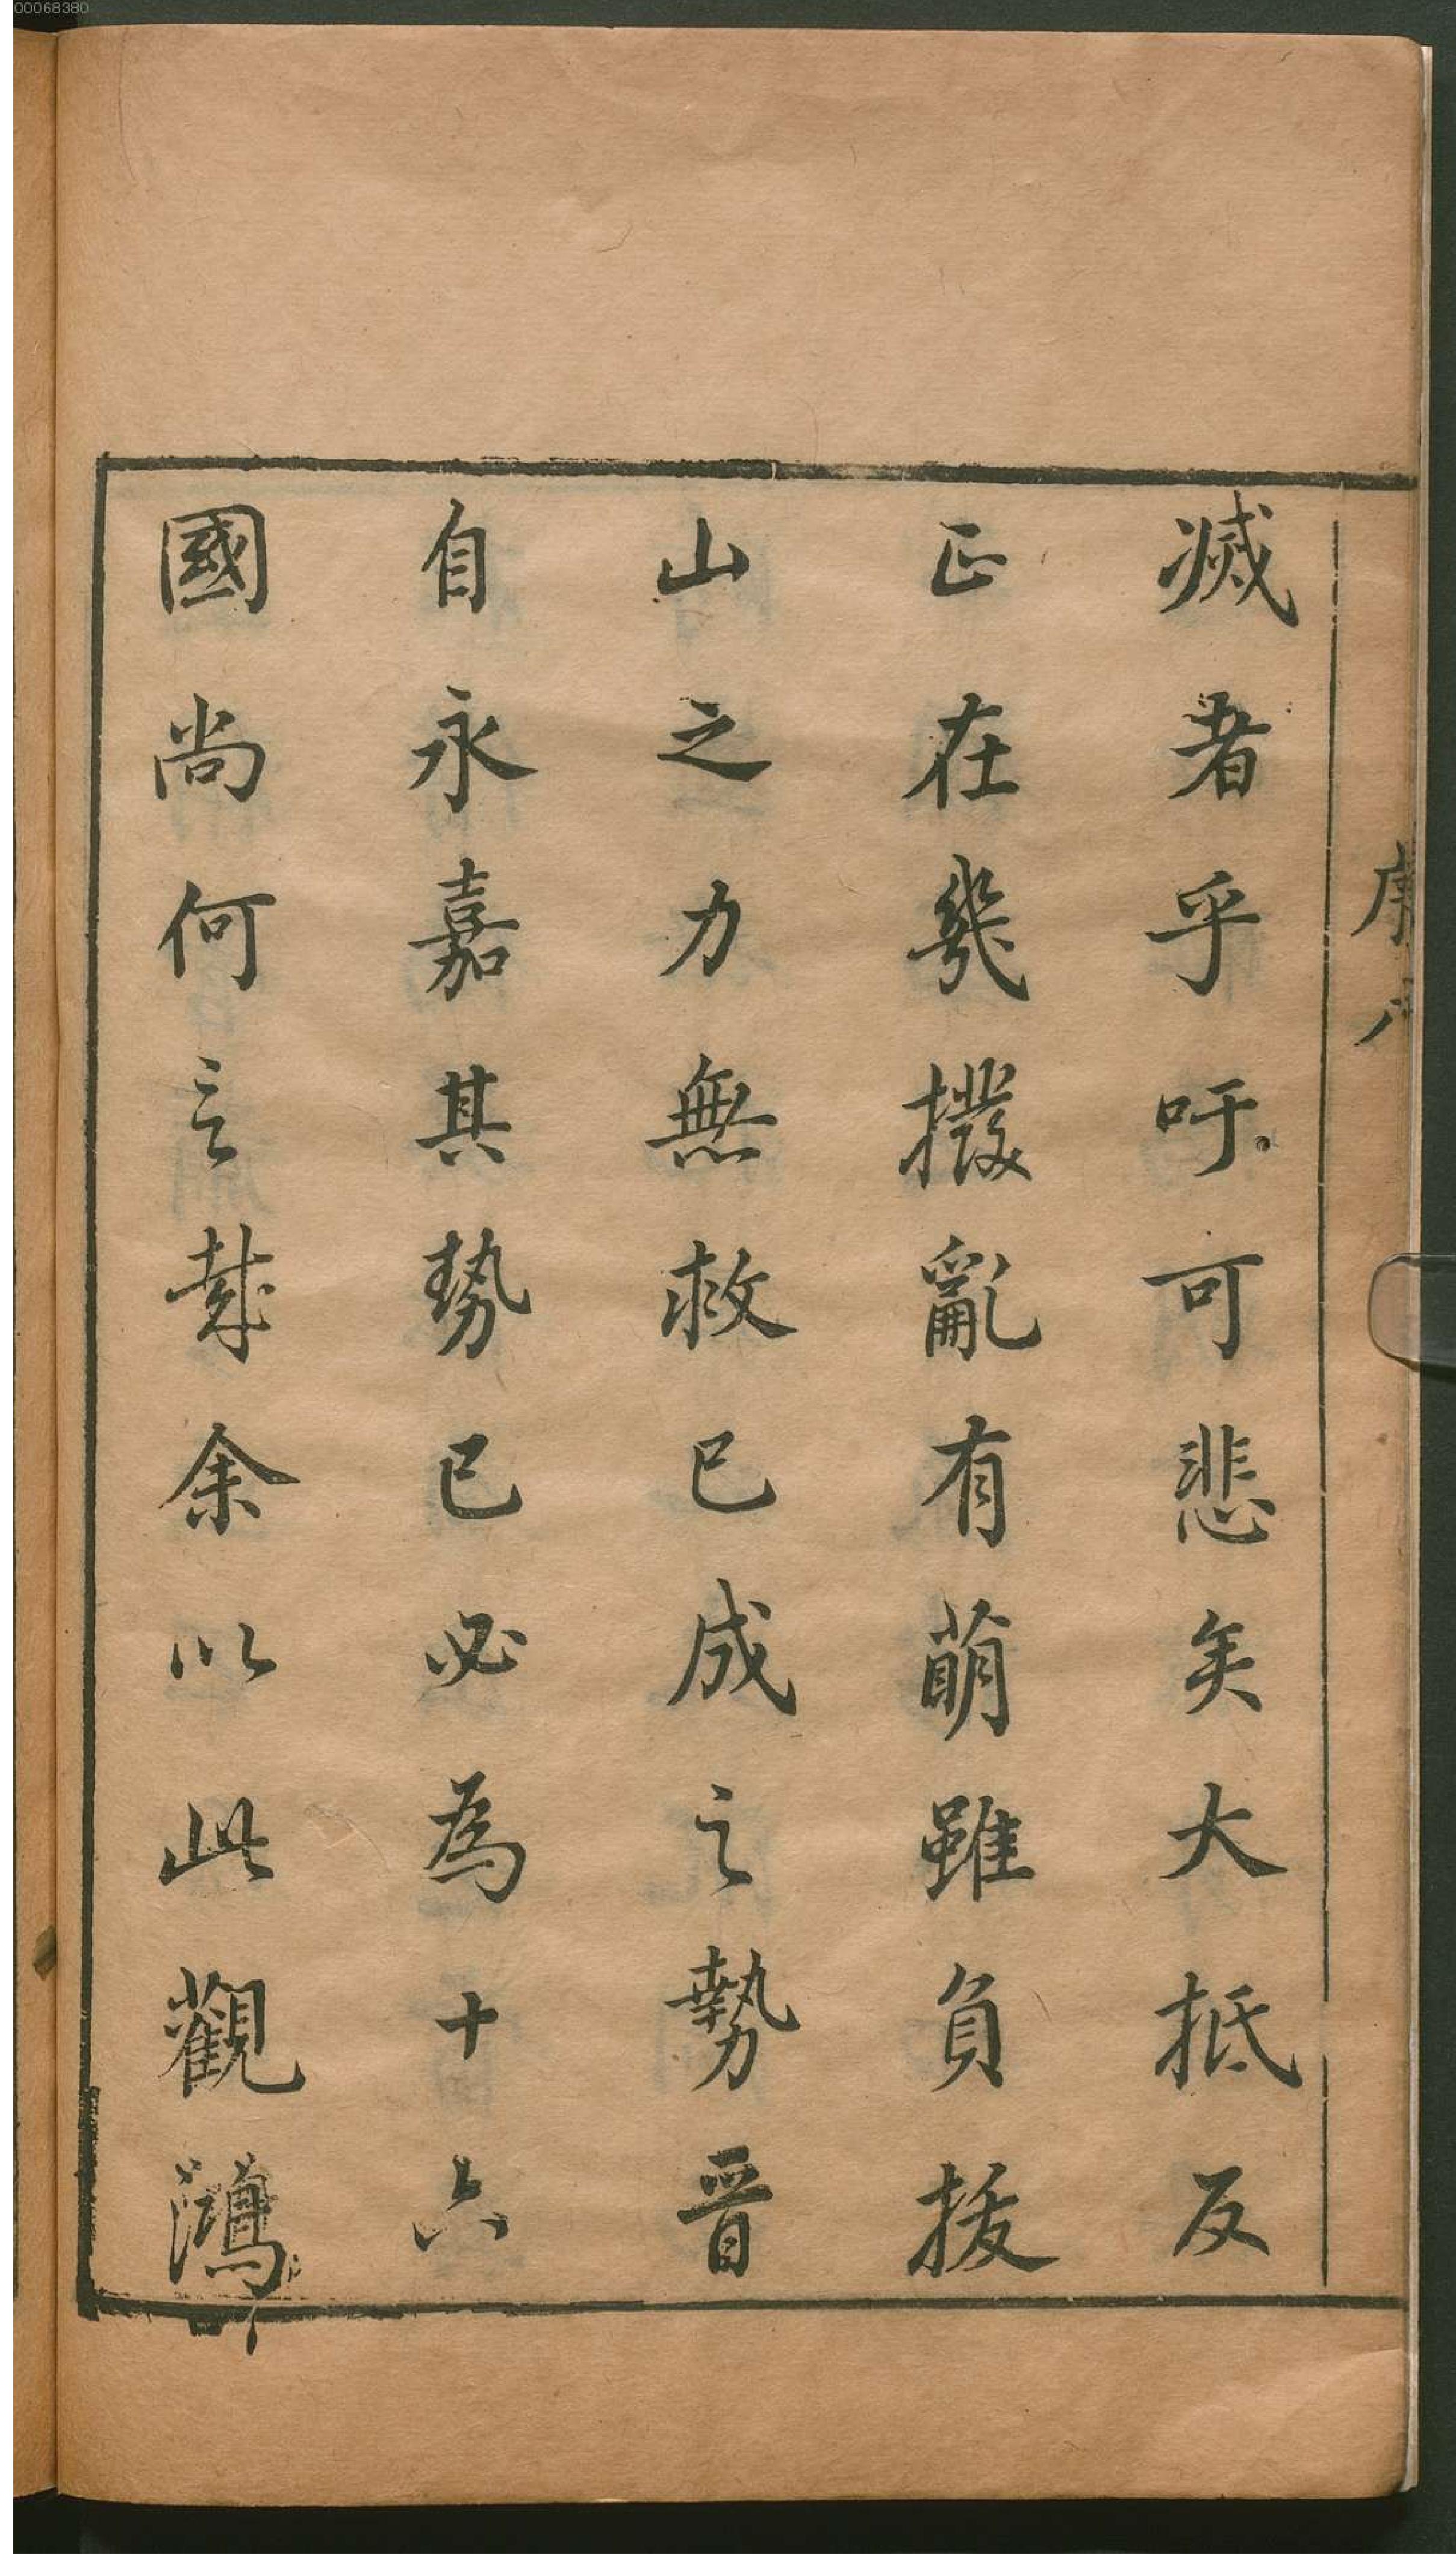 00068380
滅者乎吁可悲矣大抵反
正在幾撥亂有萌雖負拔
山之力無救已成之勢晉
自永嘉其勢已必為十六
國尚何言哉余以此觀鴻